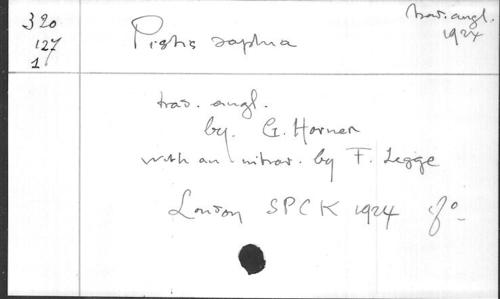 320
127
1
Pistis sophia
trad. angl.
1924
trad. angl.
by. G. Horner
with an introd. by F. Legge
London SPCK 1924 8°